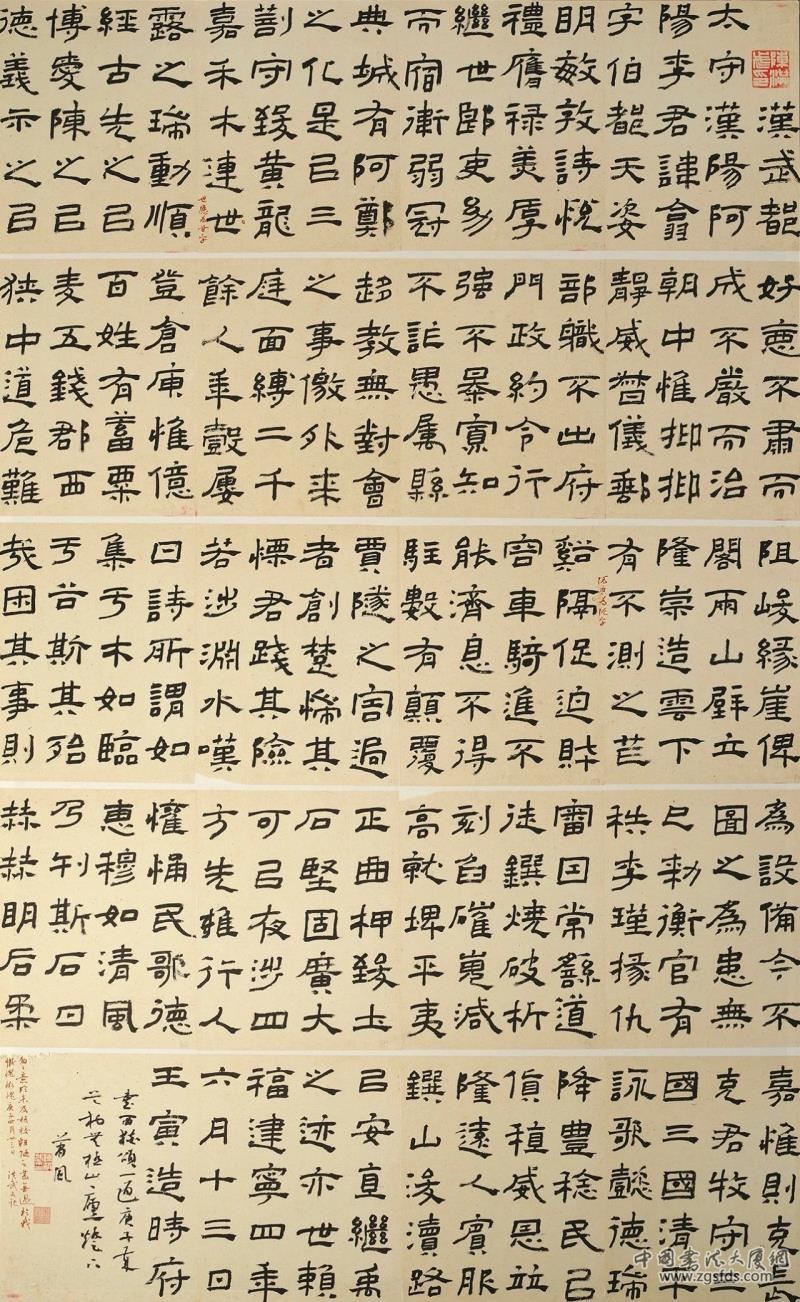 漢武都
太守漢陽阿
陽李君諱翕
字伯都天姿
明敏敦詩悅
禮膺祿美厚
繼世郎吏幼
而宿衛弱冠
典城有阿鄭
之化是㠯三
剖守致黃龍
嘉禾木連世
露之瑞動順
經古先之㠯
博愛陳之㠯
德義示之㠯
好惡不肅而
成不嚴而治
朝中惟抑抑
靜威督儀郵
部職不出府
門政約令行
強不暴寡知
不詐愚屬縣
趍教無對會
之事儌外來
庭面縛二千
餘人年穀屢
登倉庾惟億
百姓有蓄粟
麦五錢郡西
狹中道危難
阻峻緣崖俾
閣兩山壁立
隆崇造雲下
有不測之
谿隔促迫財
容車騎進不
能濟息不得
駐數有顛覆
賈隧之害過
者創楚惴其
慄君踐其險
若涉淵水嘆
曰詩所謂如
集于木如臨
于谷斯其殆
哉困其事則
為設備今不
圖之為患無
已勑衡官有
秩李瑾掾仇
審因常繇道
徒鐉燒破析
刻臽磪嵬減
高就埤平夷
正曲柙致土
石堅固廣大
可㠯夜涉四
方先雍行人
懽悀民歌德
惠穆如清風
乃刊斯石曰
赫赫明后柔
嘉惟則克長
克君牧守三
國三國清平
詠歌懿德瑞
降豐稔民㠯
貨稙威恩並
隆遠人賓服
鐉山浚瀆路
㠯安直繼禹
之迹亦世賴
福建寧四年
六月十三日
壬寅造時府
書西狹頌一通庚子夏
中国書法大厦網
www.zgsfds.com